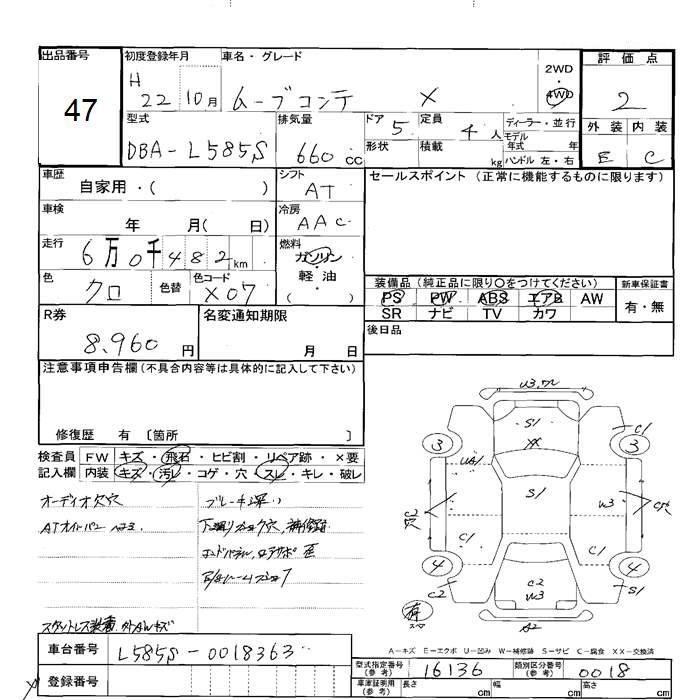 出品番号 47
初度登録年月 H 22 10月
車名・グレード ムーブコンテ X
2WD 4WD
評価点 2
外装 内装 E C
型式 DBA-L585S
排気量 660 CC
ドア 5
形状
定員 4人
積載 kg
ディーラー・並行
モデル年式 年
ハンドル 左・右
車歴 自家用・( )
シフト AT
セールスポイント (正常に機能するものに限ります)
車検 年 月( 日)
冷房 AAC
走行 6万0千482km
燃料 ガソリン・軽油 ( )
色 クロ 色替 色コード X07
装備品 (純正品に限り○をつけてください)
PS PW ABS エアB AW
SR ナビ TV カワ
新車保証書 有・無
R券 8.960 円
名変通知期限 月 日
後日品
注意事項申告欄 (不具合内容等は具体的に記入して下さい)
修復歴 有 〔箇所 〕
検査員記入欄 FW キズ・飛石・ヒビ割・リペア跡・×要
内装 キズ・汚レ・コゲ・穴・スレ・キレ・破レ
オーディオ欠穴
スタットレス装着
U3.W
S1
XX
C1
3
3
UA1
S1
W3
C2穴
C1
C1
4
4
C2
C2
W3
S1
有
スペア
A2
A-キズ E-エクボ U-凹み W-補修跡 S-サビ C-腐食 XX-交換済
車台番号 L585S-0018363
型式指定番号 (参考) 16136
類別区分番号 (参考) 0018
登録番号
車庫証明用 (参考) 長さ cm 幅 cm 高さ cm